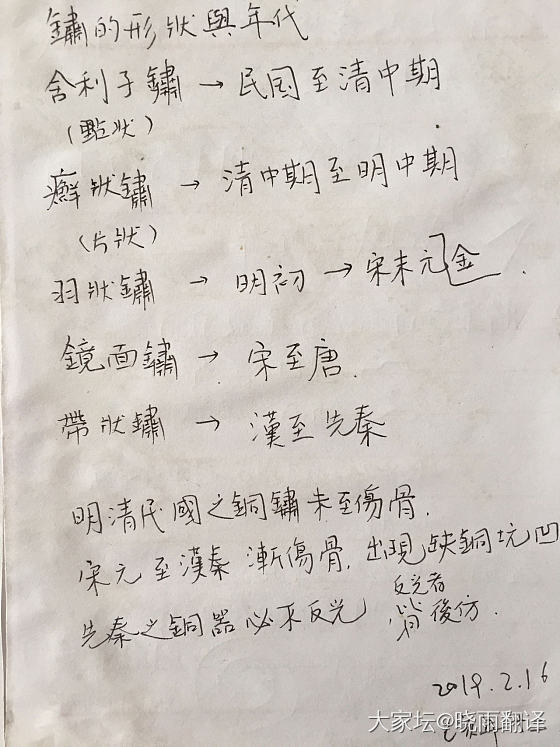 鏽的形狀與年代
舍利子鏽 → 民国至清中期
(點狀)
癬狀鏽 → 清中期至明中期
(片狀)
羽狀鏽 → 明初 → 宋末元金.
鏡面鏽 → 宋至唐.
帶狀鏽 → 漢至先秦
明清民國之銅鏽未至傷骨.
宋元至漢秦漸傷骨,出現缺銅坑凹
先秦之銅器必不反光 反光者皆後仿.
2019.2.16
大家坛@晓雨翻译